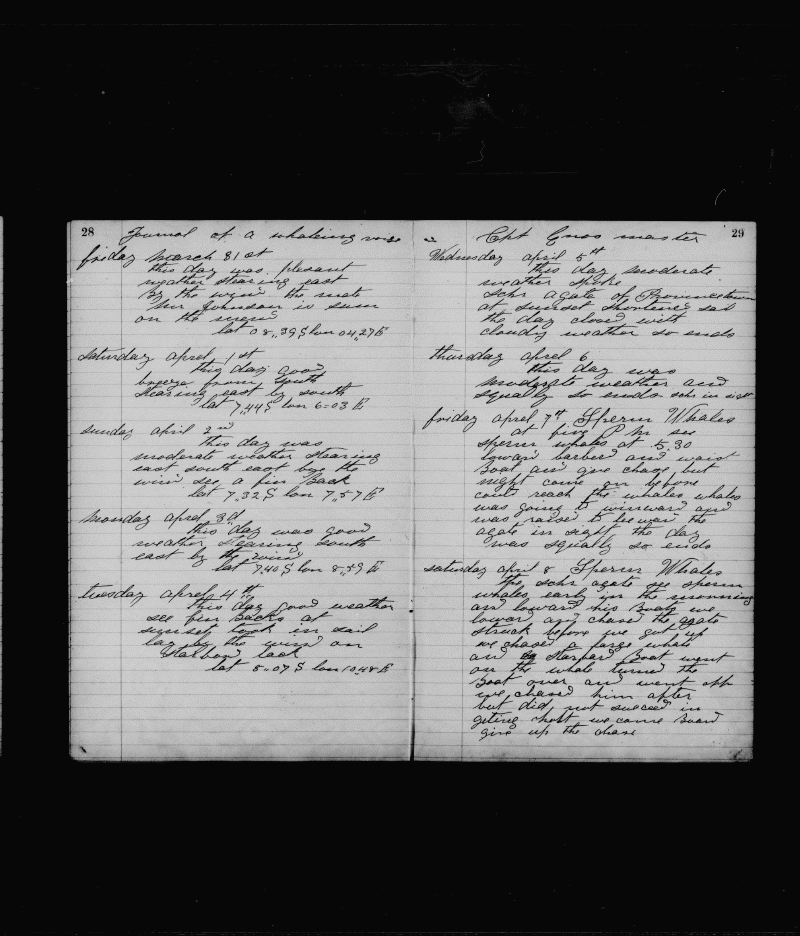 28
Journal of a whaleing
friday march 31 st
this day was plesant
weather stearing east
by the wind the mate
Mr Johnson is sum
on the mend
lat 08,,39 S lon 04,,27 E
saturday aprel 1 st
this day good
breeze from South
stearing east by south
lat 7,,44 S lon 6=03 E
sunday april 2 nd
this day was
moderate weather stearing
east south east bye the
wind see a fin Back
lat 7,,32 S lon 7,,57 E
monday aprel 3 d
this day was good
weather stearing South
east by the wind
lat 7,,40 S lon 8,,59 E
tuesday aprel 4 th
this day good weather
see fin Backs at
sunset took in sail
lay by the wind on
Starbord tack
lat 8,,07 S lon 10,,48 E
Cpt Enos master
29
Wednesday april 5 th
this day moderate
weather spoke
Schr agate of Provincetown
at sunset shortened sail
the day closed with
cloudy weather so ends
thursday aprel 6
this day was
moderate weather and
squaly so ends schr in sight
friday aprel 7 th Sperm Whales
at five P M see
sperm whales at 5.30
loward larbord and waist
Boat and give chase but
night come on before
could reach the whales whales
was going to winward and
was raised to leward the
agate in sight the day
was squaly so ends
saturday april 8 Sperm Whales
the schr agate see sperm
whales early in the morning
and loward his Boats we
loward and chased the agate
struck before we got up
we chased a large whale
and Starbord Boat went
on the whale turned the
Boat over and went off
we chased him after
but did not succeed in
geting we come Board
give up the chase